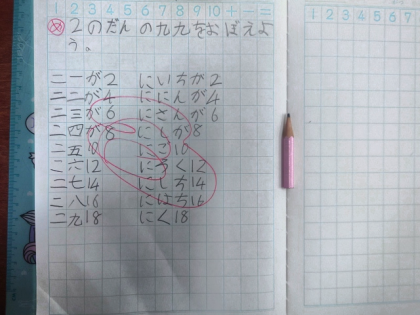 1 2 3 4 5 6 7 8 9 10 + - =
め 2のだんの九九をおぼえよ
う。
二一が2 にいちが2
二二が4 ににんが4
二三が6 にさんが6
二四が8 にしが8
二五10 にご10
二六12 にろく12
二七14 にしち14
二八16 にはち16
二九18 にく18
1 2 3 4 5 6 7